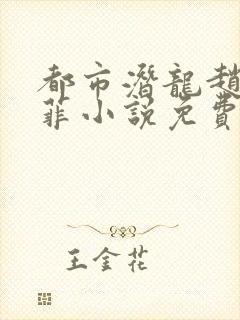 都市潛龍趙
菲小說免費
王金花